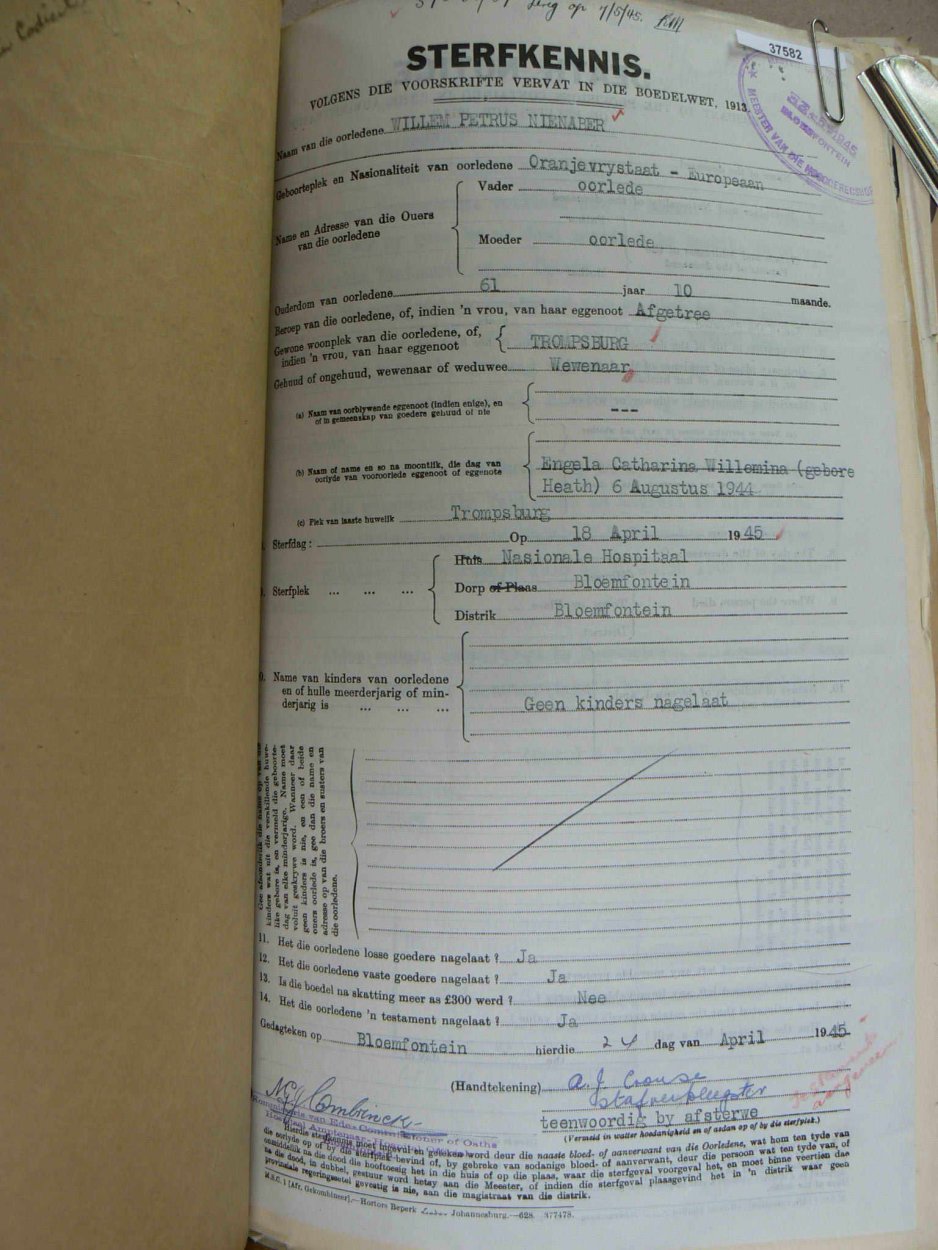 op 7/5/45.
37582
STERFKENNIS.
VOLGENS DIE VOORSKRIFTE VERVAT IN DIE BOEDELWET, 1913.
MEESTER VAN DIE
Naam van die oorledene WILLEM PETRUS NIENABER
Geboorteplek en Nasionaliteit van oorledene Oranjevrystaat - Europeaan
Name en Adresse van die Ouers van die oorledene
Vader oorlede
Moeder oorlede
Ouderdom van oorledene 61 jaar 10 maande.
Beroep van die oorledene, of, indien 'n vrou, van haar eggenoot Afgetree
Gewone woonplek van die oorledene, of,
indien 'n vrou, van haar eggenoot TROMPSBURG
Gehuud of ongehuud, wewenaar of weduwee Wewenaar
(a) Naam van oorblywende eggenoot (indien enige), en
of in gemeenskap van goedere gehuud of nie ---
(b) Naam of name en so na moontlik, die dag van
oorlyde van vooroorlede eggenoot of eggenote
Engela Catharina Willemina (gebore
Heath) 6 Augustus 1944
(c) Plek van laaste huwelik Trompsburg
Sterfdag: Op 18 April 1945
Sterfplek ... ... ...
Huis Nasionale Hospitaal
Dorp of Plaas Bloemfontein
Distrik Bloemfontein
Name van kinders van oorledene
en of hulle meerderjarig of min-
derjarig is ... ... ...
Geen kinders nagelaat
kinders wat uit die verskillende huwe-
like gebore is, en vermeld die geboorte-
dag van elke minderjarige. Name moet
voluit geskrywe word. Wanneer daar
geen kinders is nie, en een of beide
ouers oorlede is, gee dan die name en
adresse op van die broers en susters van
die oorledene.
11. Het die oorledene losse goedere nagelaat? Ja
12. Het die oorledene vaste goedere nagelaat? Ja
13. Is die boedel na skatting meer as £300 werd? Nee
14. Het die oorledene 'n testament nagelaat? Ja
Gedagteken op Bloemfontein hierdie 24 dag van April 1945
(Handtekening) A. J. Crouse
stafverpleegster
teenwoordig by afsterwe
(Vermeld in watter hoedanigheid en of aldan op of by die sterfplek.)
Combrinck
Kommissaris van Edes Commissioner of Oaths
Hierdie sterfkennis moet ingevul en geteken word deur die naaste bloed- of aanverwant van die Oorledene, wat hom ten tyde van
die oorlyde op of by die sterfplek bevind of, by gebreke van sodanige bloed- of aanverwant, deur die persoon wat ten tyde van, of
onmiddellik na die dood die hooftoesig het in die huis of op die plaas, waar die sterfgeval voorgeval het, en moet binne veertien dae
na die dood, in dubbel, gestuur word hetsy aan die Meester, of indien die sterfgeval plaasgevind het in 'n distrik waar geen
provinsiale regeringsetel gevestig is nie, aan die magistraat van die distrik.
M.B.C. 1 [Afr. Gekombineer].—Hortors Beperk Johannesburg.—628. 377478.